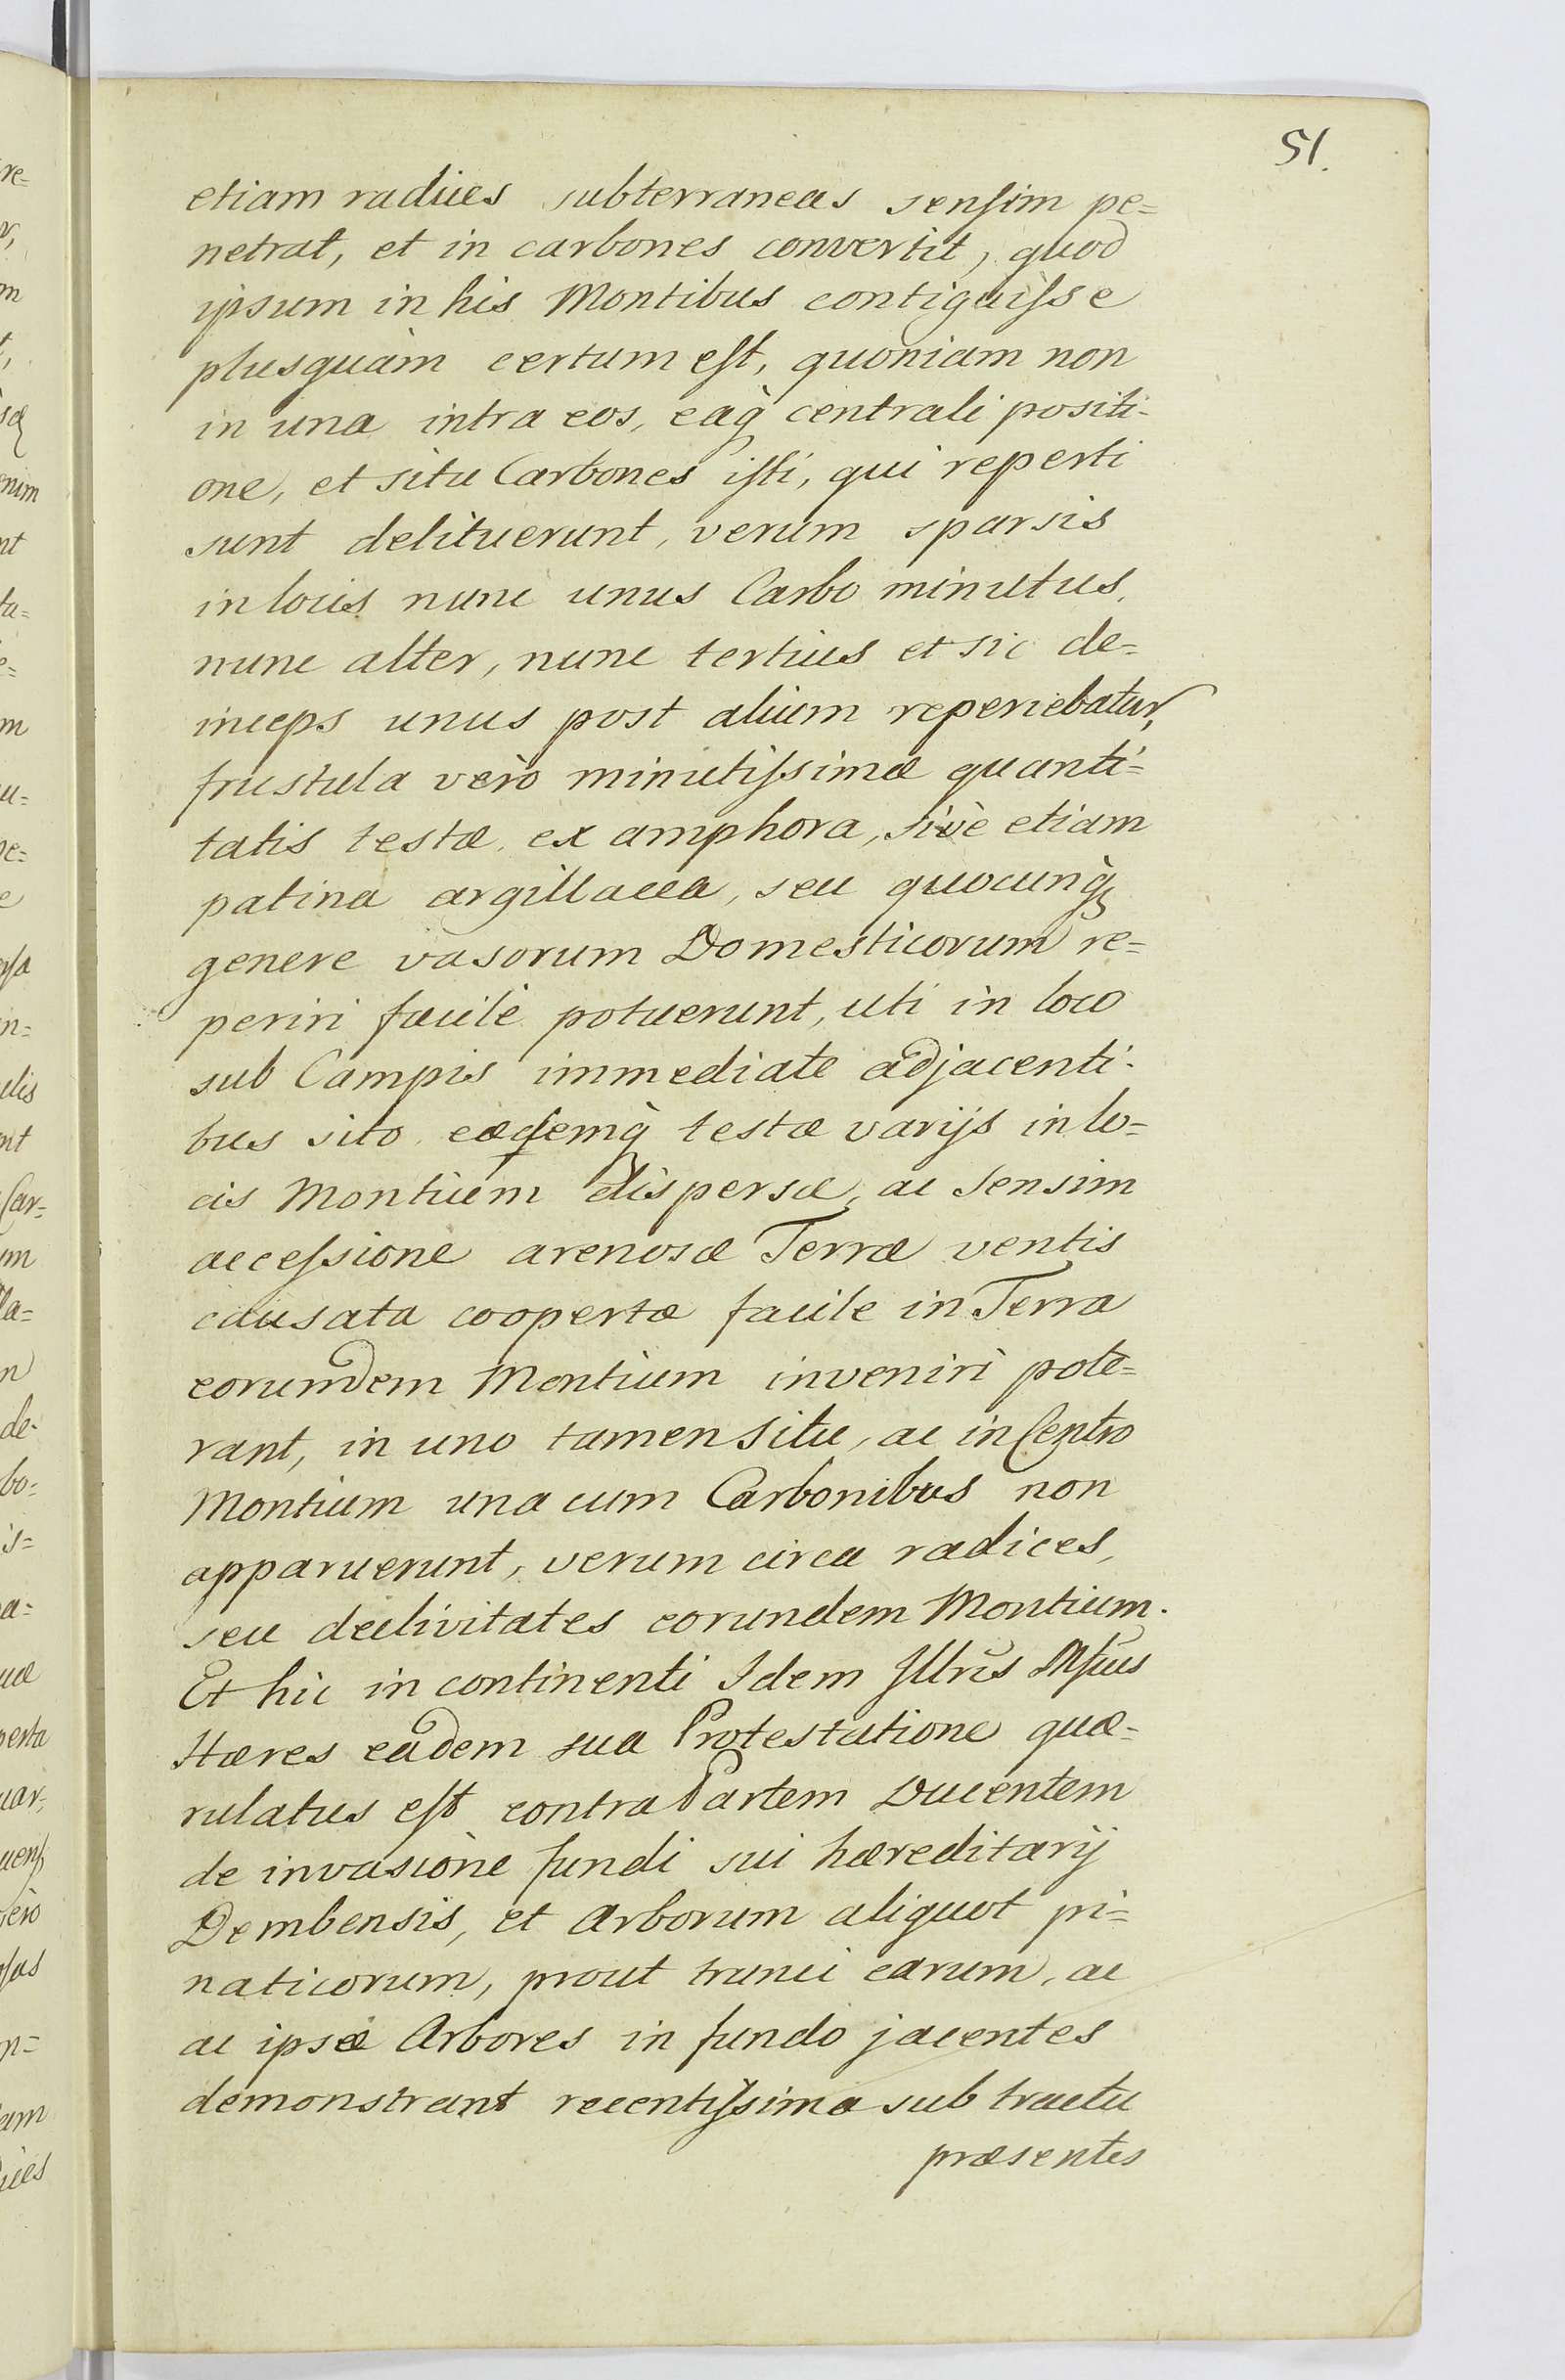 51.
etiam radices subterraneas sensim pe=
netrat, et in carbones convertit, quod
ipsum in his Montibus contiguisse
plusquàm certum est, quoniam non
in una intra eos, eaq̀ centrali positi-
one, et situ Carbones isti, qui reperti
sunt delituerunt, verum sparsis
in locis nunc unus Carbo minutus,
nunc alter, nunc tertius et sic de=
inceps unus post alium reperiebatur,
frustula verò minutissimæ quanti=
tatis testæ, ex amphora, sivè etiam
patina argillacea, seu quocunq̀
genere vasorum Domesticorum re=
periri facilè potuerunt, uti in loco
sub Campis immediate adjacenti-
bus sito, eædemq̀ testæ varijs in lo=
cis Montium dispersæ, ac sensim
accessione arenosæ Terræ ventis
causata coopertæ facile in Terra
eorumdem Montium inveniri pote=
rant, in uno tamen situ, ac in Centro
Montium una cum Carbonibus non
apparuerunt, verum circa radices,
seu declivitates eorundem Montium.
Et hic in continenti Idem Illris Mfcus
Hæres eadem sua Protestatione quæ=
rulatus est contra Partem Ducentem
de invasione fundi sui hæreditarij
Dembensis, et Arborum aliquot pi=
naticorum, prout trunci earum, ac
ac ipsæ Arbores in fundo jacentes
demonstrant recentissima sub tractu
præsentis